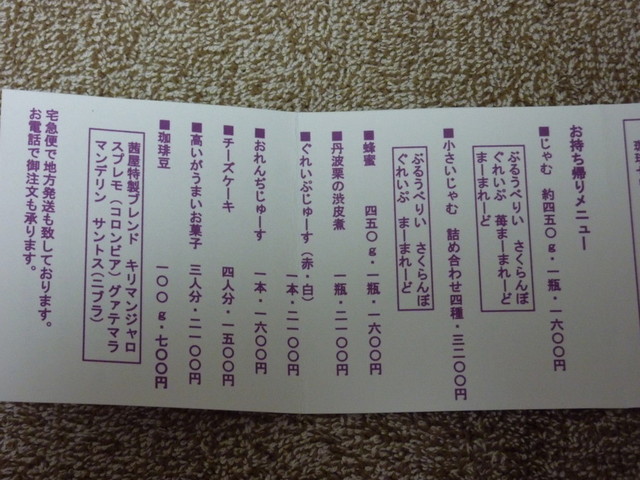 お持ち帰りメニュー
■じゃむ　約四五〇ｇ・一瓶・一六〇〇円
ぶるうべりい　さくらんぼ
ぐれいぷ　苺まーまれーど
まーまれーど
■小さいじゃむ　詰め合わせ四種・三二〇〇円
ぶるうべりい　さくらんぼ
ぐれいぷ　まーまれーど
■蜂蜜　四五〇ｇ・一瓶・一六〇〇円
■丹波栗の渋皮煮　一瓶・二一〇〇円
■ぐれいぷじゅーす（赤・白）
一本・二一〇〇円
■おれんぢじゅーす　一本・一六〇〇円
■チーズケーキ　四人分・一五〇〇円
■高いがうまいお菓子　三人分・二一〇〇円
■珈琲豆　一〇〇ｇ・七〇〇円
茜屋特製ブレンド　キリマンジャロ
スプレモ（コロンビア）グァテマラ
マンデリン　サントス（ニブラ）
宅急便で地方発送も致しております。
お電話で御注文も承ります。